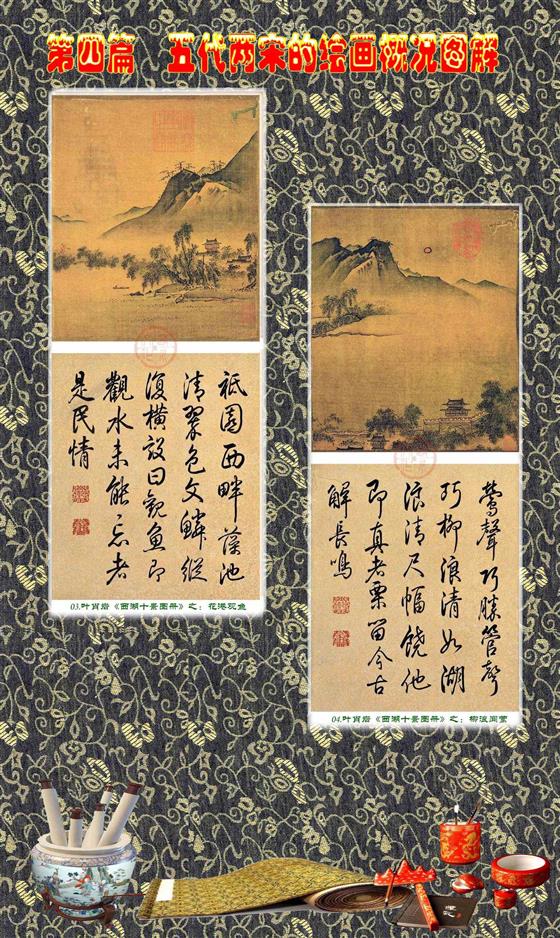 第四篇 五代两宋的绘画概况图解
祇園西畔藻池
清翠色文鱗縱
復橫設曰觀魚即
觀水未能忘者
是民情
03.叶肖岩《西湖十景图册》之：花港观鱼
鶯聲巧勝管聲
巧柳浪清如湖
浪清尺幅饒他
即真者栗留今古
解長鳴
04.叶肖岩《西湖十景图册》之：柳浪闻莺